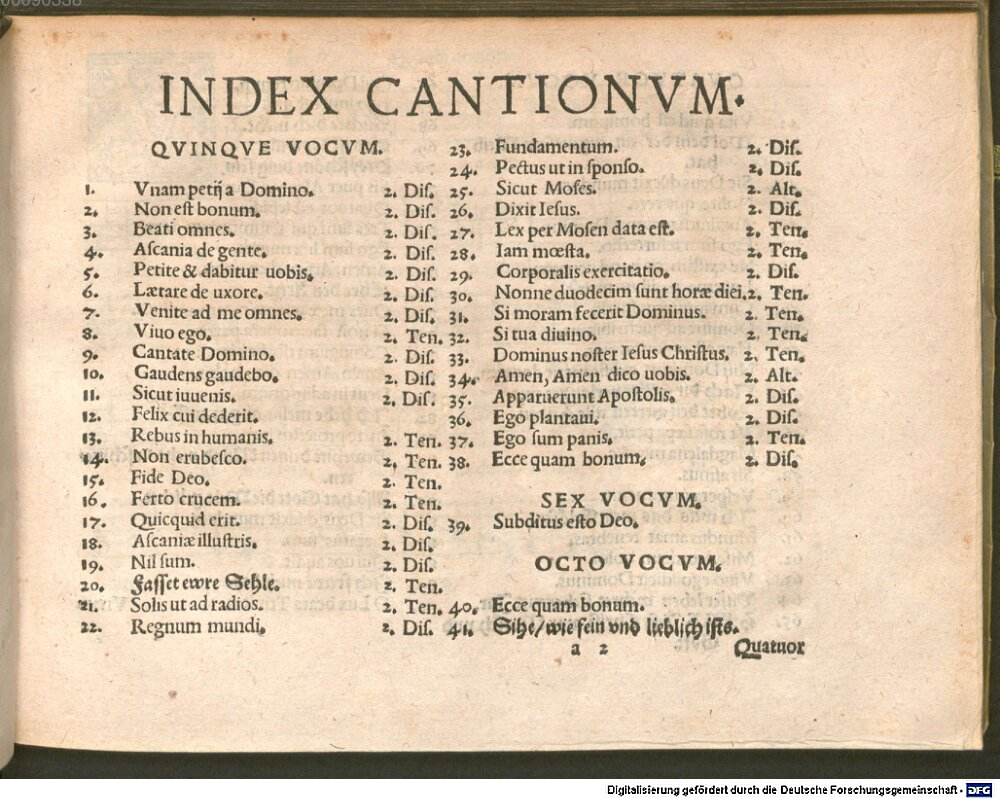 INDEX CANTIONVM.
QVINQVE VOCVM.
1. Vnam petij a Domino. 2. Dis.
2. Non est bonum. 2. Dis.
3. Beati omnes. 2. Dis.
4. Ascania de gente. 2. Dis.
5. Petite & dabitur uobis. 2. Dis.
6. Lætare de uxore. 2. Dis.
7. Venite ad me omnes. 2. Dis.
8. Viuo ego. 2. Ten.
9. Cantate Domino. 2. Dis.
10. Gaudens gaudebo. 2. Dis.
11. Sicut iuuenis. 2. Dis.
12. Felix cui dederit.
13. Rebus in humanis. 2. Ten.
14. Non erubesco. 2. Ten.
15. Fide Deo. 2. Ten.
16. Ferto crucem. 2. Ten.
17. Quicquid erit. 2. Dis.
18. Ascaniæ illustris. 2. Dis.
19. Nil sum. 2. Dis.
20. Fasset ewre Sehle. 2. Ten.
21. Solis ut ad radios. 2. Ten.
22. Regnum mundi. 2. Dis.
23. Fundamentum. 2. Dis.
24. Pectus ut in sponso. 2. Dis.
25. Sicut Moses. 2. Alt.
26. Dixit Iesus. 2. Dis.
27. Lex per Mosen data est. 2. Ten.
28. Iam mœsta. 2. Ten.
29. Corporalis exercitatio. 2. Dis.
30. Nonne duodecim sunt horæ diei. 2. Ten.
31. Si moram fecerit Dominus. 2. Ten.
32. Si tua diuino. 2. Ten.
33. Dominus noster Iesus Christus. 2. Ten.
34. Amen, Amen dico uobis. 2. Alt.
35. Apparuerunt Apostolis. 2. Dis.
36. Ego plantaui. 2. Dis.
37. Ego sum panis. 2. Ten.
38. Ecce quam bonum. 2. Dis.
SEX VOCVM.
39. Subditus esto Deo.
OCTO VOCVM.
40. Ecce quam bonum.
41. Sihe/ wie fein vnd lieblich ists.
a 2 Quatuor
Digitalisierung gefördert durch die Deutsche Forschungsgemeinschaft - DFG